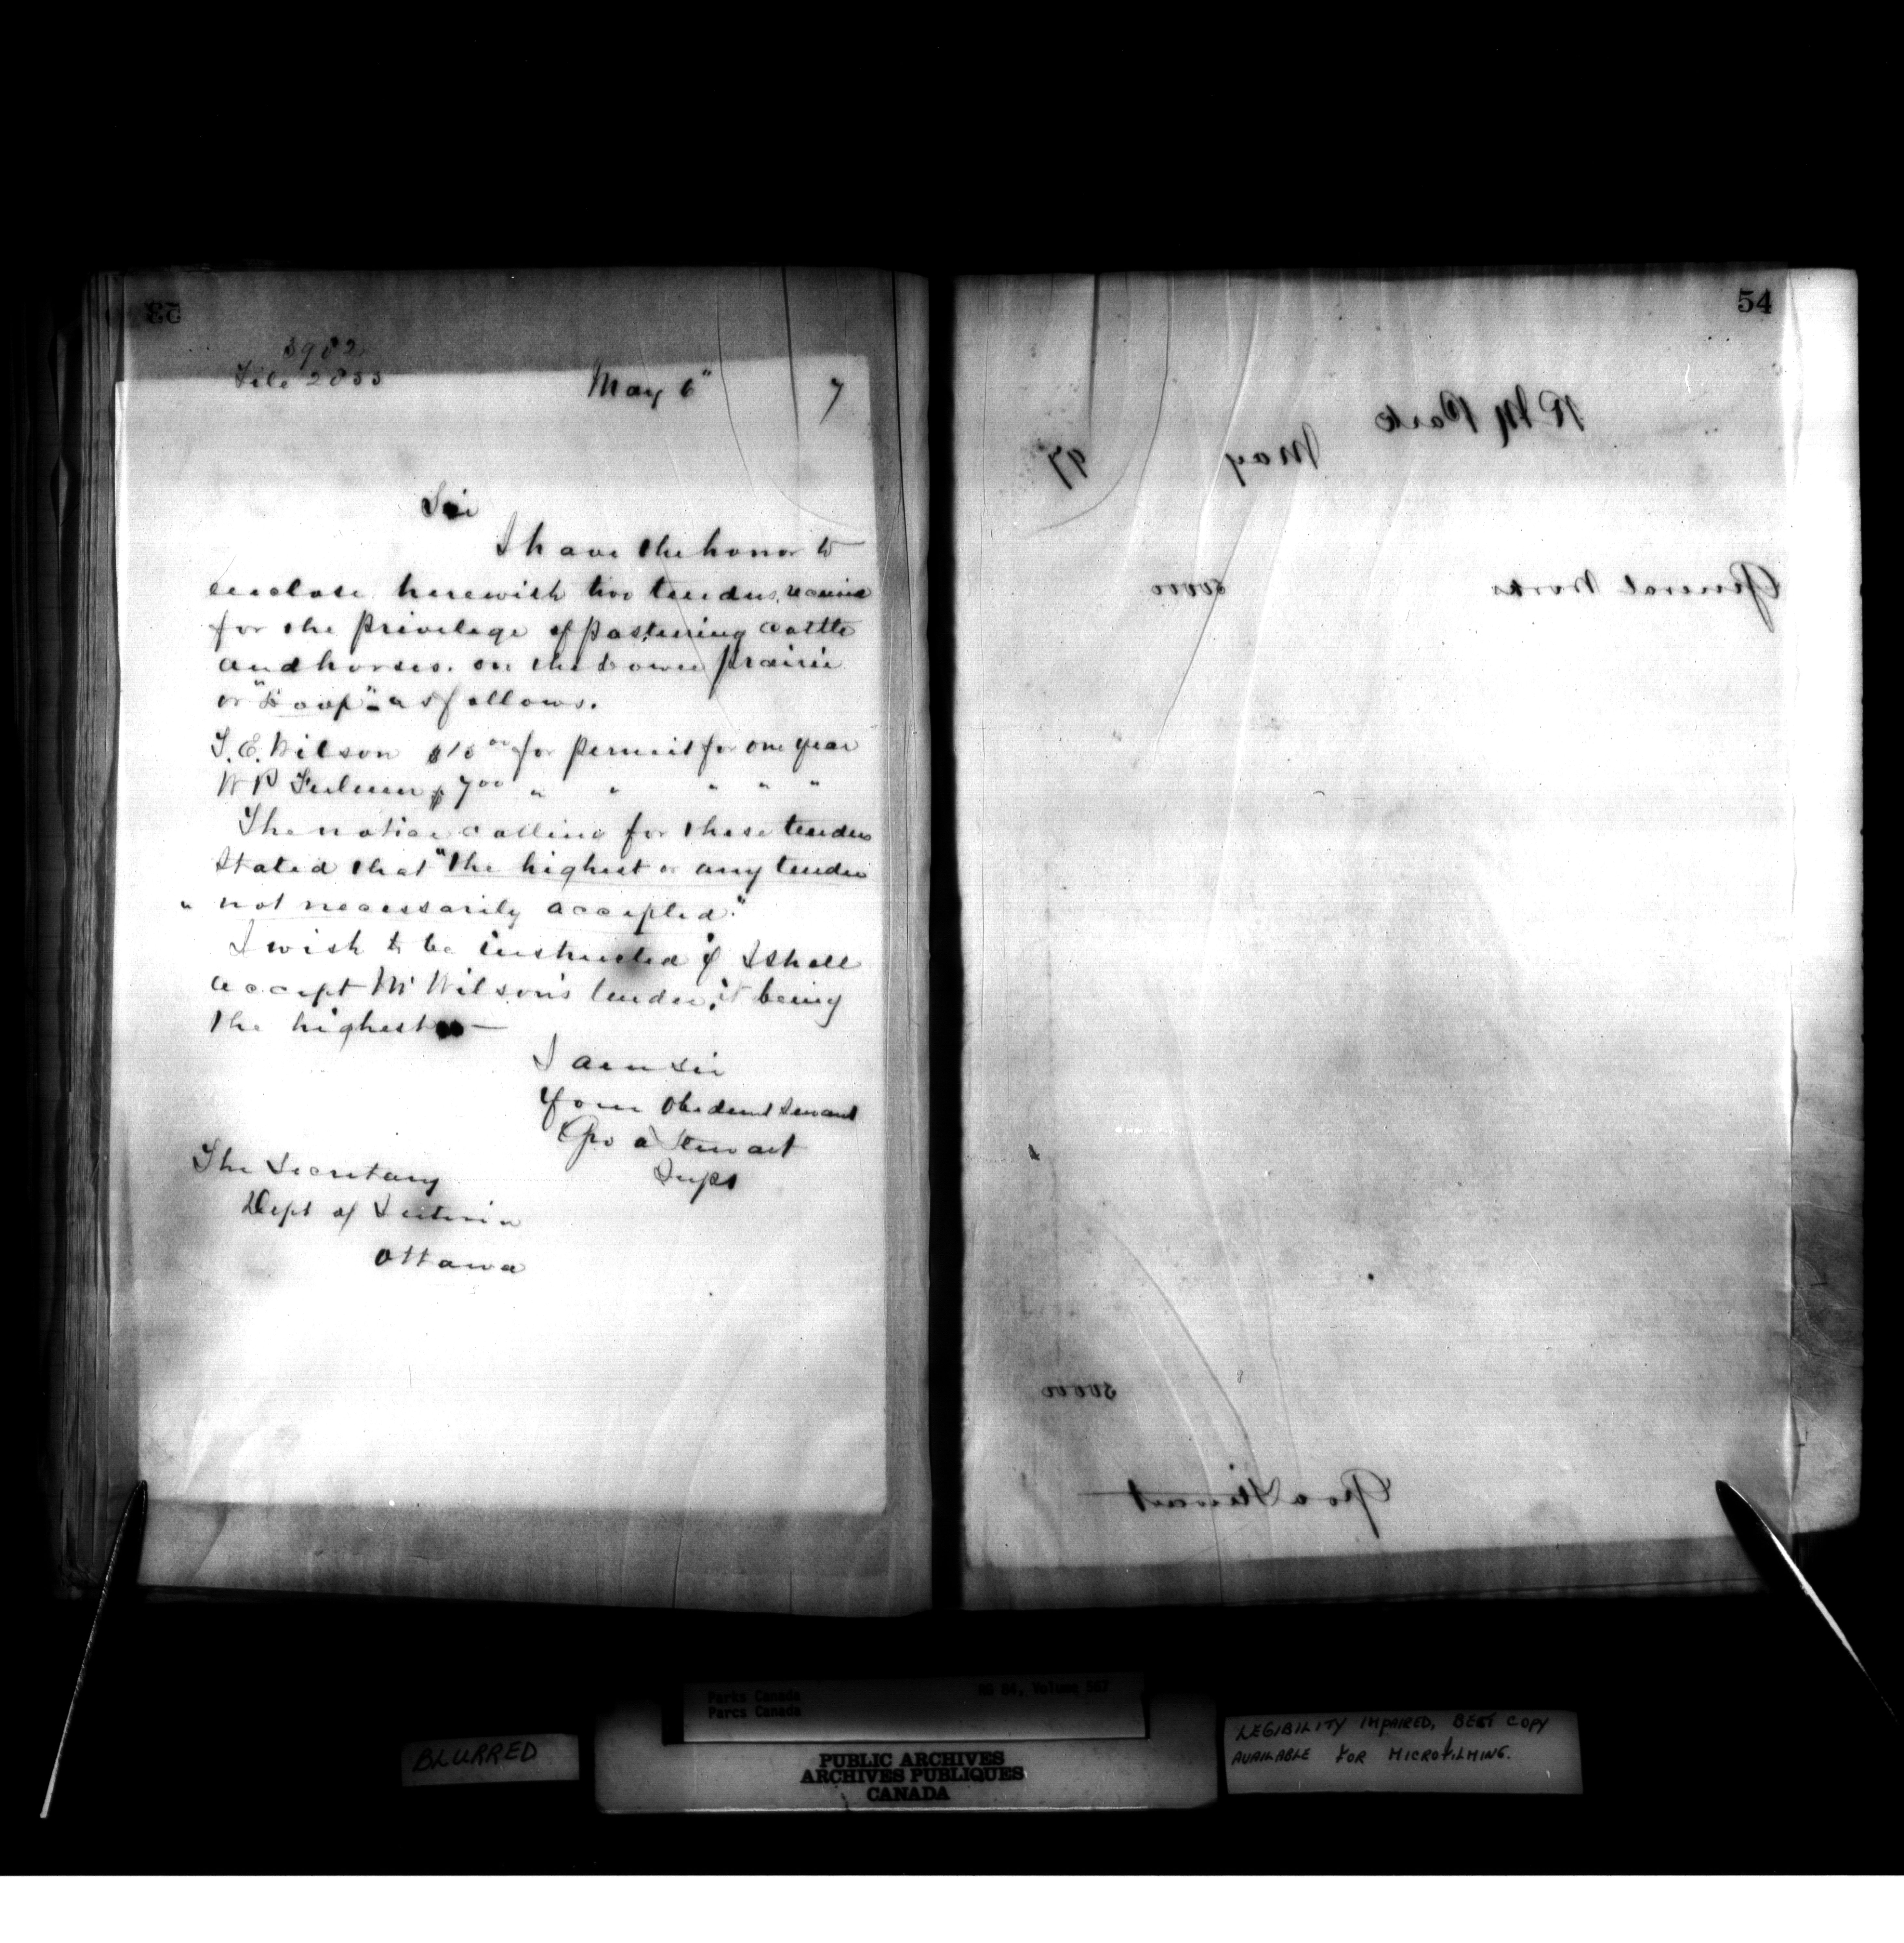 53
3982
File 2033
May 6" 7
Sir
I have the honor to
enclose herewith two tenders, received
for the privelege of pasturing cattle
and horses. on the Lower prairie
or "Loop" as follows.
T. E. Wilson $15 00 for permit for one year
W P $ 7 00 " " " " "
The notice calling for these tenders
stated that "the highest or any tender
" not necessarily accepted."
I wish to be instructed if I shall
accept Mr Wilson's tender, it being
the highest —
I am Sir
Your Obedient Servant
Geo a Stewart
Supt
The Secretary
Dept of Interior
Ottawa
54
R M Park
May 97
General Works 50000
50000
Geo a Stewart
Parks Canada RG 84, Volume 567
Parcs Canada
BLURRED
PUBLIC ARCHIVES
ARCHIVES PUBLIQUES
CANADA
LEGIBILITY IMPAIRED, BEST COPY
AVAILABLE FOR MICROFILMING.